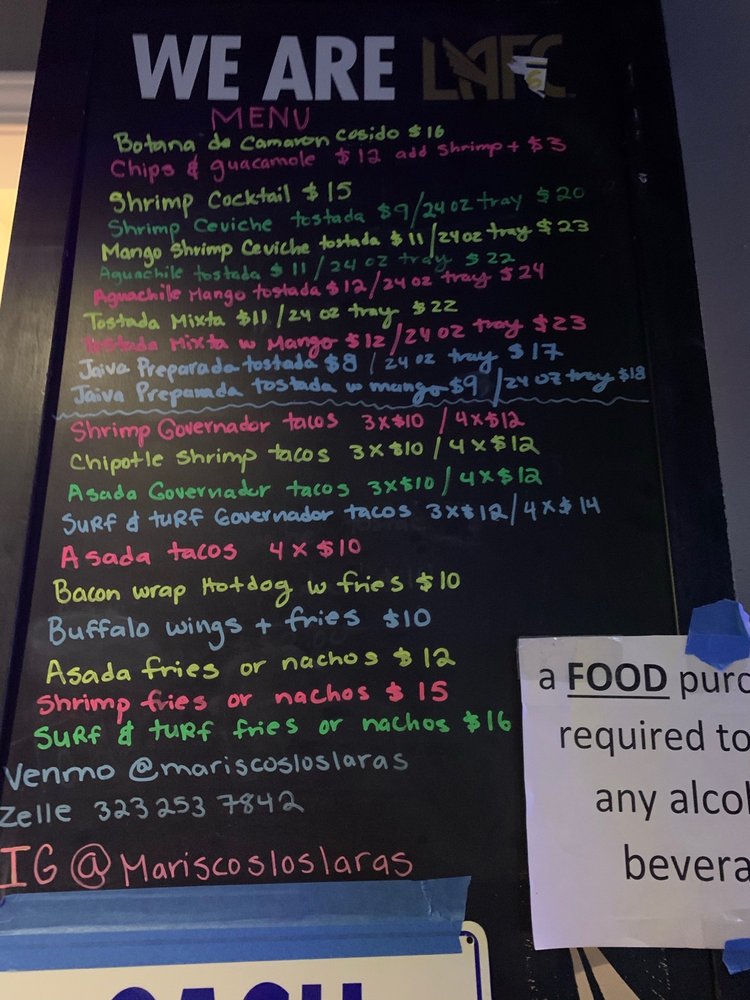 WE ARE LAFC
MENU
Botana de Camaron Cosido $16
Chips & guacamole $12 add Shrimp + $3
Shrimp Cocktail $15
Shrimp Ceviche tostada $9/24oz tray $20
Mango Shrimp Ceviche tostada $11/24oz tray $23
Aguachile tostada $11/24 oz tray $22
Aguachile Mango tostada $12/24oz tray $24
Tostada Mixta $11/24 oz tray $22
Tostada Mixta w Mango $12/24oz tray $23
Jaiva Preparada tostada $8/24 oz tray $17
Jaiva Preparada tostada w mango $9/24oz tray $18
Shrimp Governador tacos 3x$10/4x$12
Chipotle Shrimp tacos 3x$10/4x$12
Asada Governador tacos 3x$10/4x$12
Surf & turf Governador tacos 3x$12/4x$14
Asada tacos 4x$10
Bacon wrap Hotdog w fries $10
Buffalo wings + fries $10
Asada fries or nachos $12
Shrimp fries or nachos $15
Surf & turf fries or nachos $16
Venmo @mariscosloslaras
Zelle 323 253 7842
IG @Mariscosloslaras
a FOOD purc
required to
any alcoh
bevera
CASH